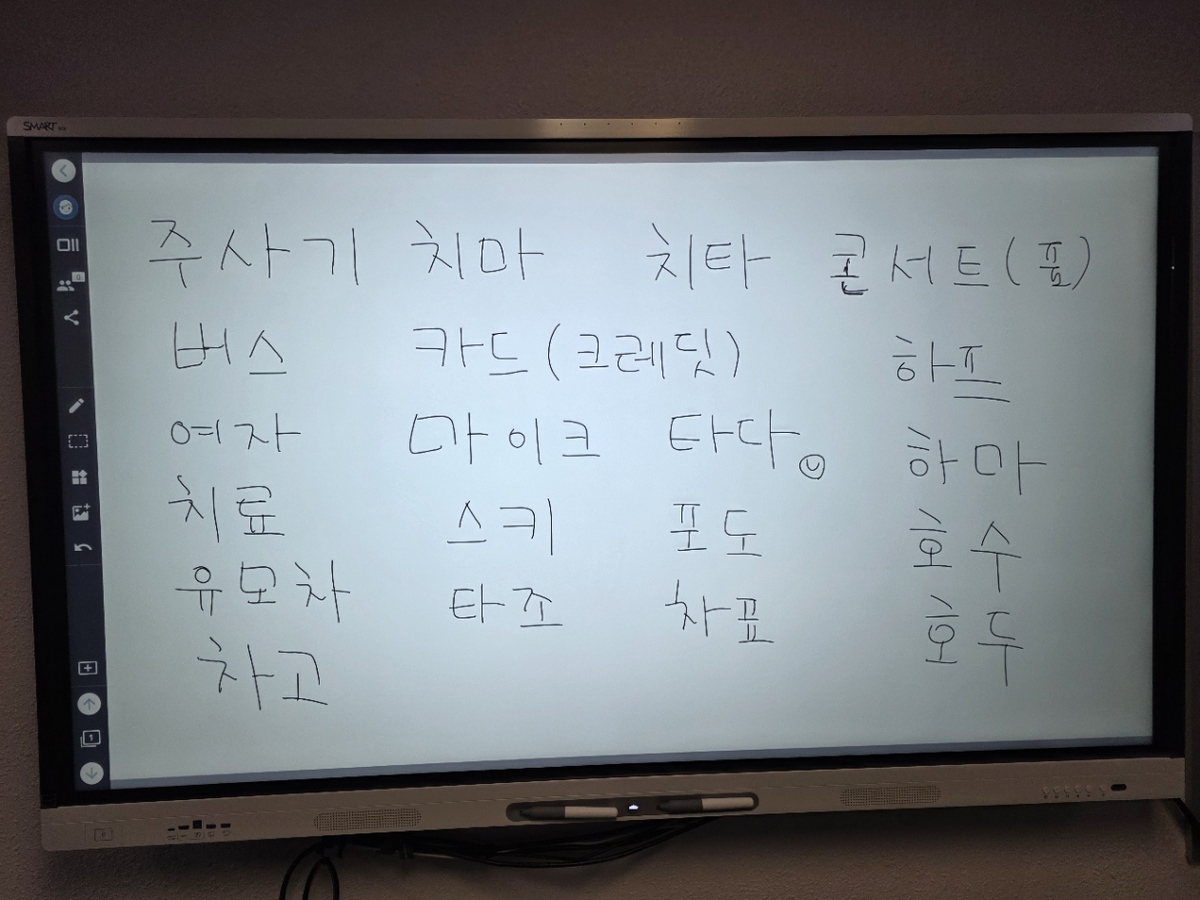 SMART
주사기 치마 치타 콘서트(표)
버스 카드(크레딧) 하프
여자 마이크 타다
치료 스키 포도 하마
유모차 타조 차표 호수
차고 호두